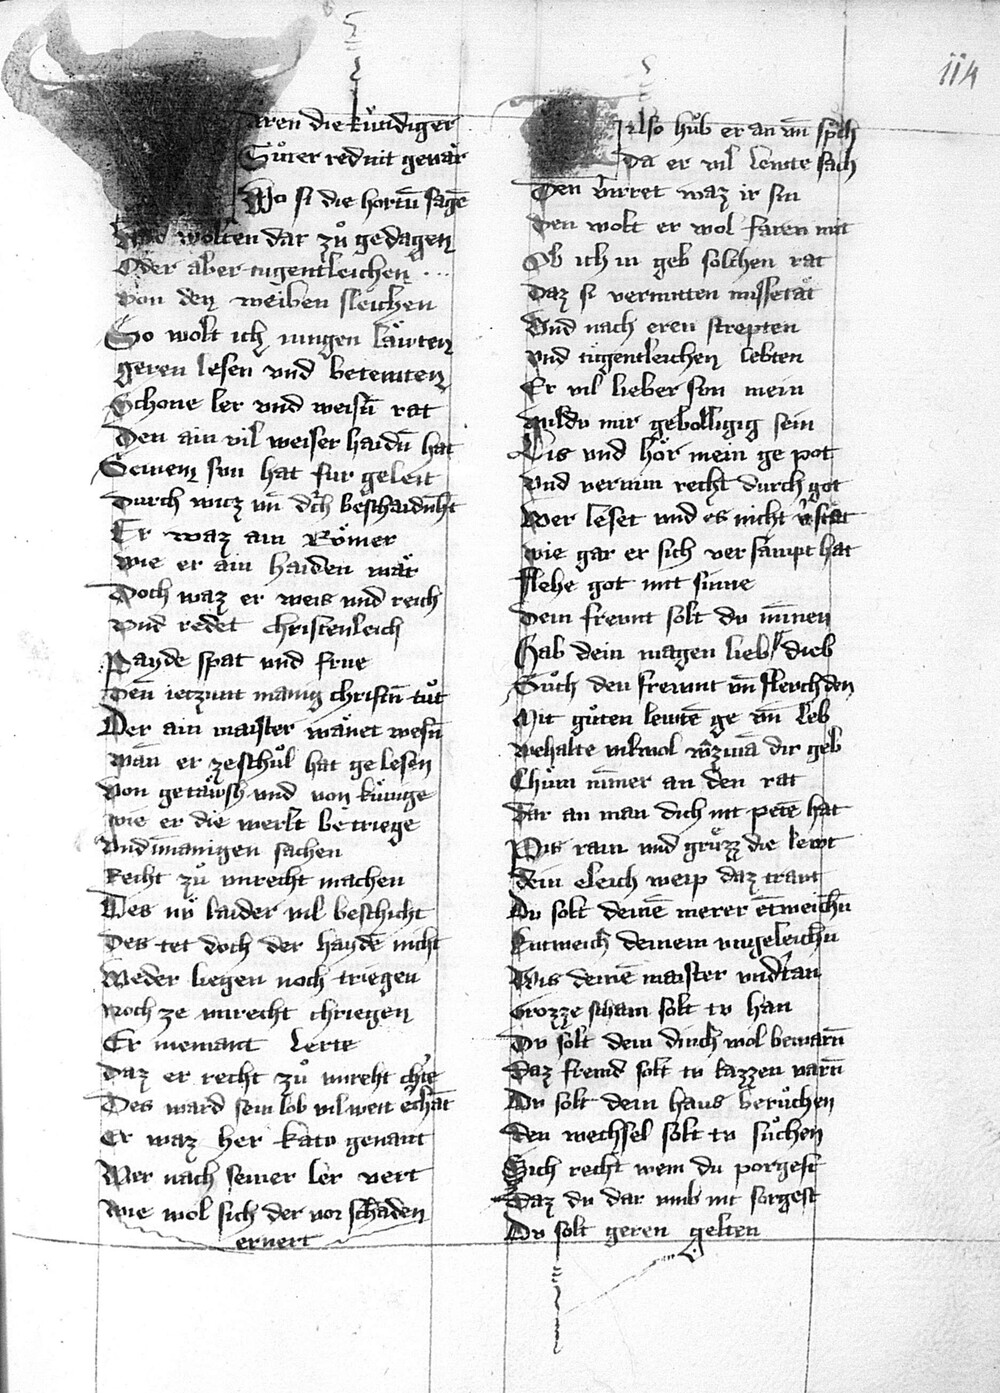 114
aren die kündiger
Gůter red nit gewär
Wo si die hortn̄ sagē
Vnd wolten dar zů gedagen
Oder aber tugentleichen
von den weiben sleichen
So wolt ich iungen läwten
geren lesen vnd betewten
Schone ler vnd weisn̄ rat
Den ain vil weiser haidn̄ hat
Seinem sun hat fur geleit
Durch wicz vn̄ dch beschaidn̄h̄t
Er waz ain Römer
wie er ain haiden wär
Doch waz er weis vnd reich
vnd redet christenleich
Payde spat vnd frue
Den̄ ietzunt manig christn̄ tůt
Der ain maister wänet wesn̄
wan̄ er ze schůl hat gelesen
Von getäwsch vnd von künige
wie er die werlt betriege
Vnd in manigen sachen
Recht zů vnrecht machen
Des nv̈ laider vil beschicht
Des tet doch der haydē nicht
Weder liegen noch triegen
noch ze vnrecht chriegen
Er niemant lerte
Daz er recht zů vnreht chērte
Des ward sein lob vil weit erchāt
Er waz her kato genant
Wer nach seiner ler vert
Wie wol sich der vor schaden
ernert
Also hůb er an vn̄ sprch
Da er vil lewte sach
Den virret waz ir sin
den wolt er wol faren mit
Ob ich in geb solchen rat
Daz si vermitten missetät
Vnd nach eren strepten
vnd tugentleichen lebten
Er vil lieber sun mein
wildv mir gevolligig sein
Lis vnd hör mein ge pot
vnd vernim recht durch got
Wer leset vnd es nicht v̄stät
wie gar er sich versampt hat
flehe got mit sinne
Dein frewnt solt dv mīnen
Hab dein magen lieb dieb
Sůch den frewnt vn̄ flewch den
Mit gůten lewtē ge vn̄ leb
wehalte vil wol w̄zmā dir geb
Chům nīmer an den rat
dar an man dich nit petē hat
Pis rain vnd grůzz die lewt
dein eleich weip daz trawt
Dv solt deinē merer entweichn̄
Entweich deinem vngeleichn̄
Wis deinē maister vndtan
Grozze scham solt tv han
Dv solt dein dinch wol bewarn̄
Daz fremd solt tv lazzen varn̄
Dv solt dein haus berůchen
den wechsel solt tv sůchen
Sich recht wem du porgest
Daz dv dar vmb nit sorgest
Dv solt geren gelten